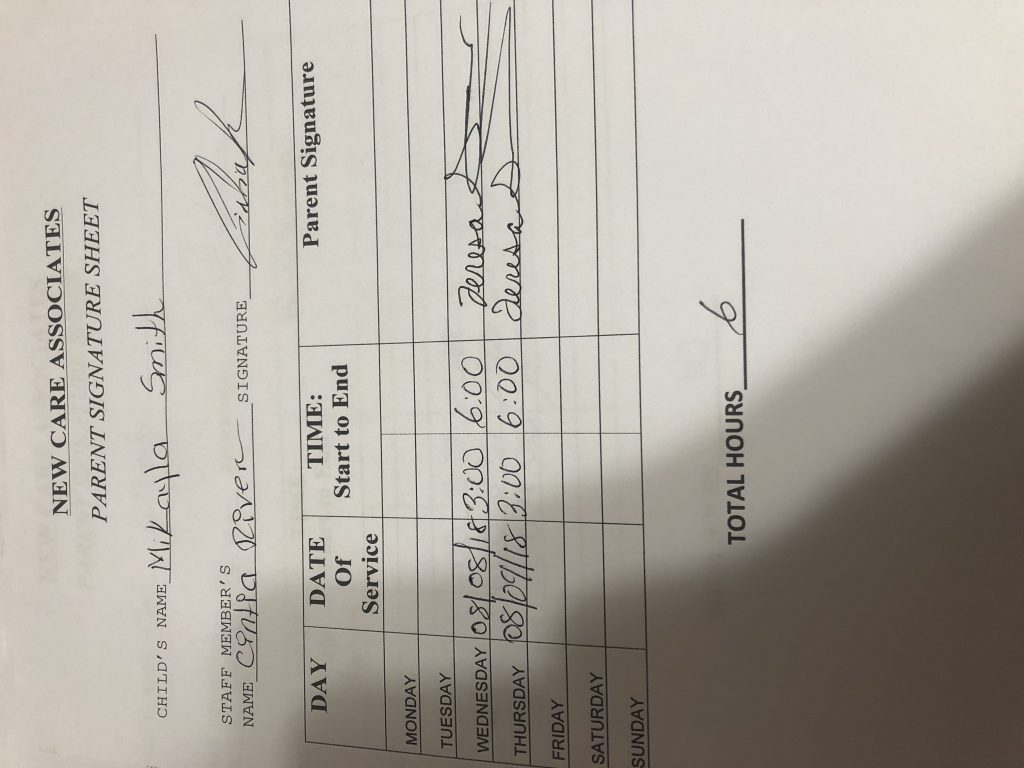 NEW CARE ASSOCIATES
PARENT SIGNATURE SHEET
CHILD'S NAME Mikayla Smith
STAFF MEMBER'S
NAME River SIGNATURE
DAY DATE Of Service TIME: Start to End Parent Signature
MONDAY
TUESDAY
WEDNESDAY 08/08/18 3:00 6:00 Teresa
THURSDAY 08/09/18 3:00 6:00 Teresa
FRIDAY
SATURDAY
SUNDAY
TOTAL HOURS 6